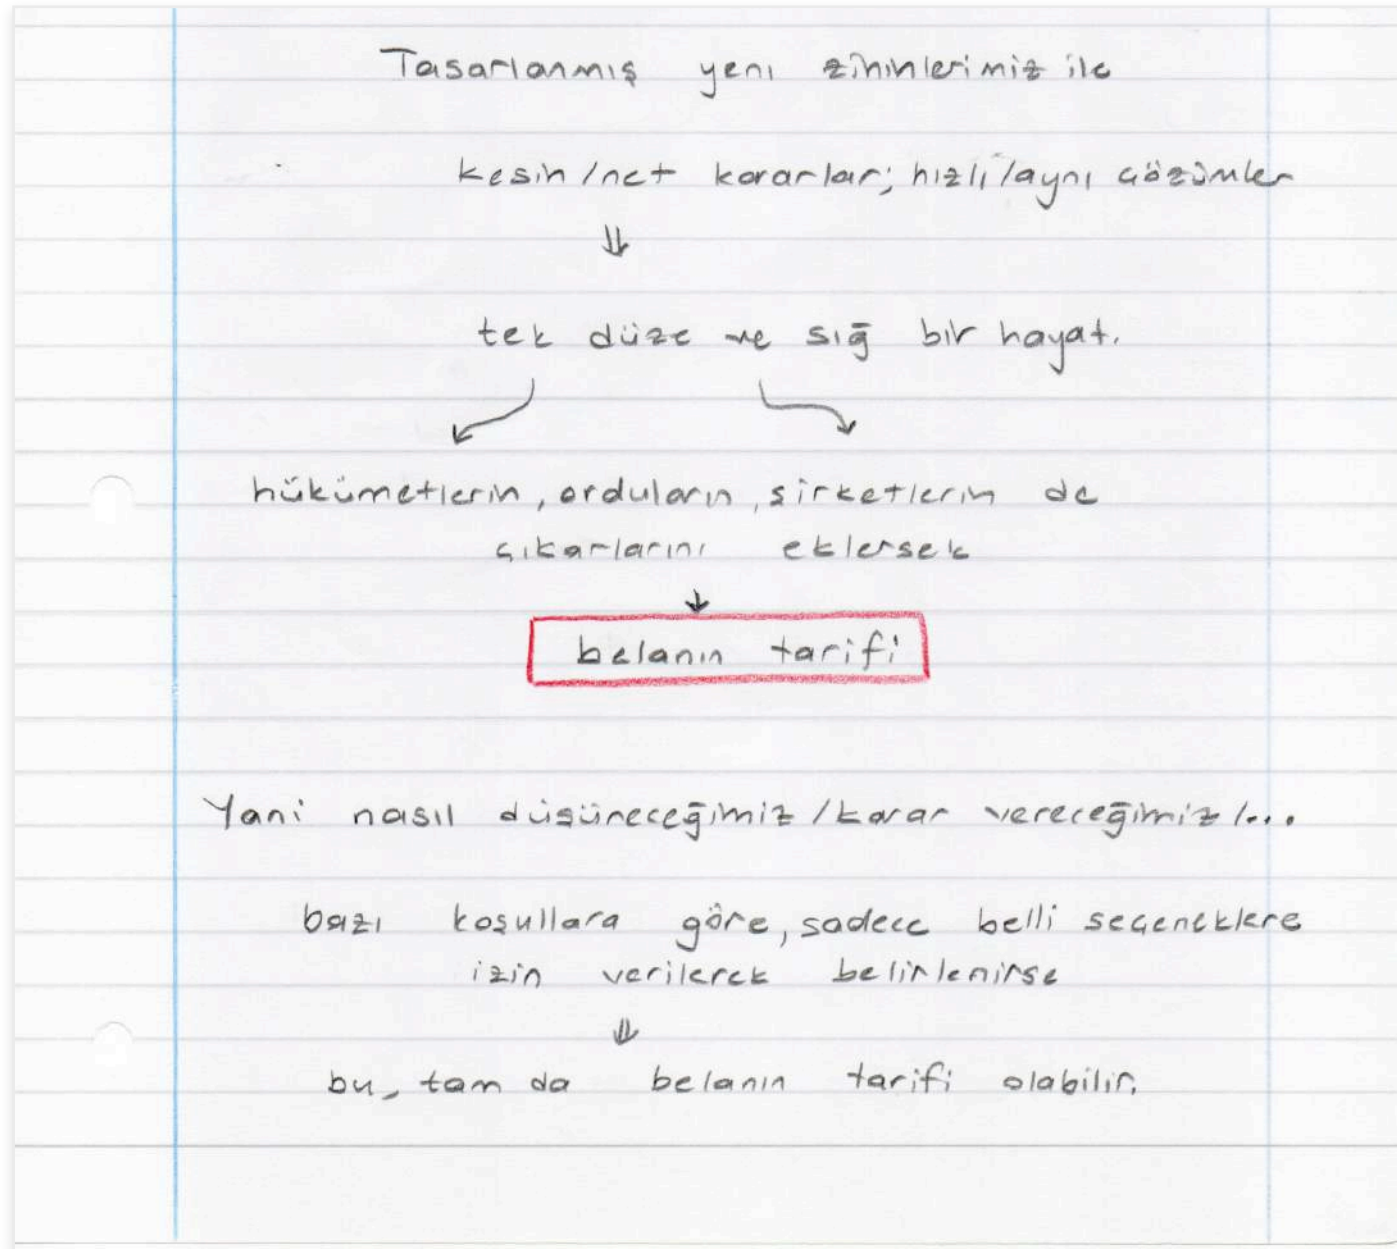 Tasarlanmış yeni zihinlerimiz ile
kesin/net kararlar; hızlı/aynı çözümler
⇓
tek düze ve sığ bir hayat.
hükümetlerin, orduların, şirketlerin de
çıkarlarını eklersek
↓
belanın tarifi
Yani nasıl düşüneceğimiz/karar vereceğimiz/...
bazı koşullara göre, sadece belli seçeneklere
izin verilerek belirlenirse
⇓
bu, tam da belanın tarifi olabilir.